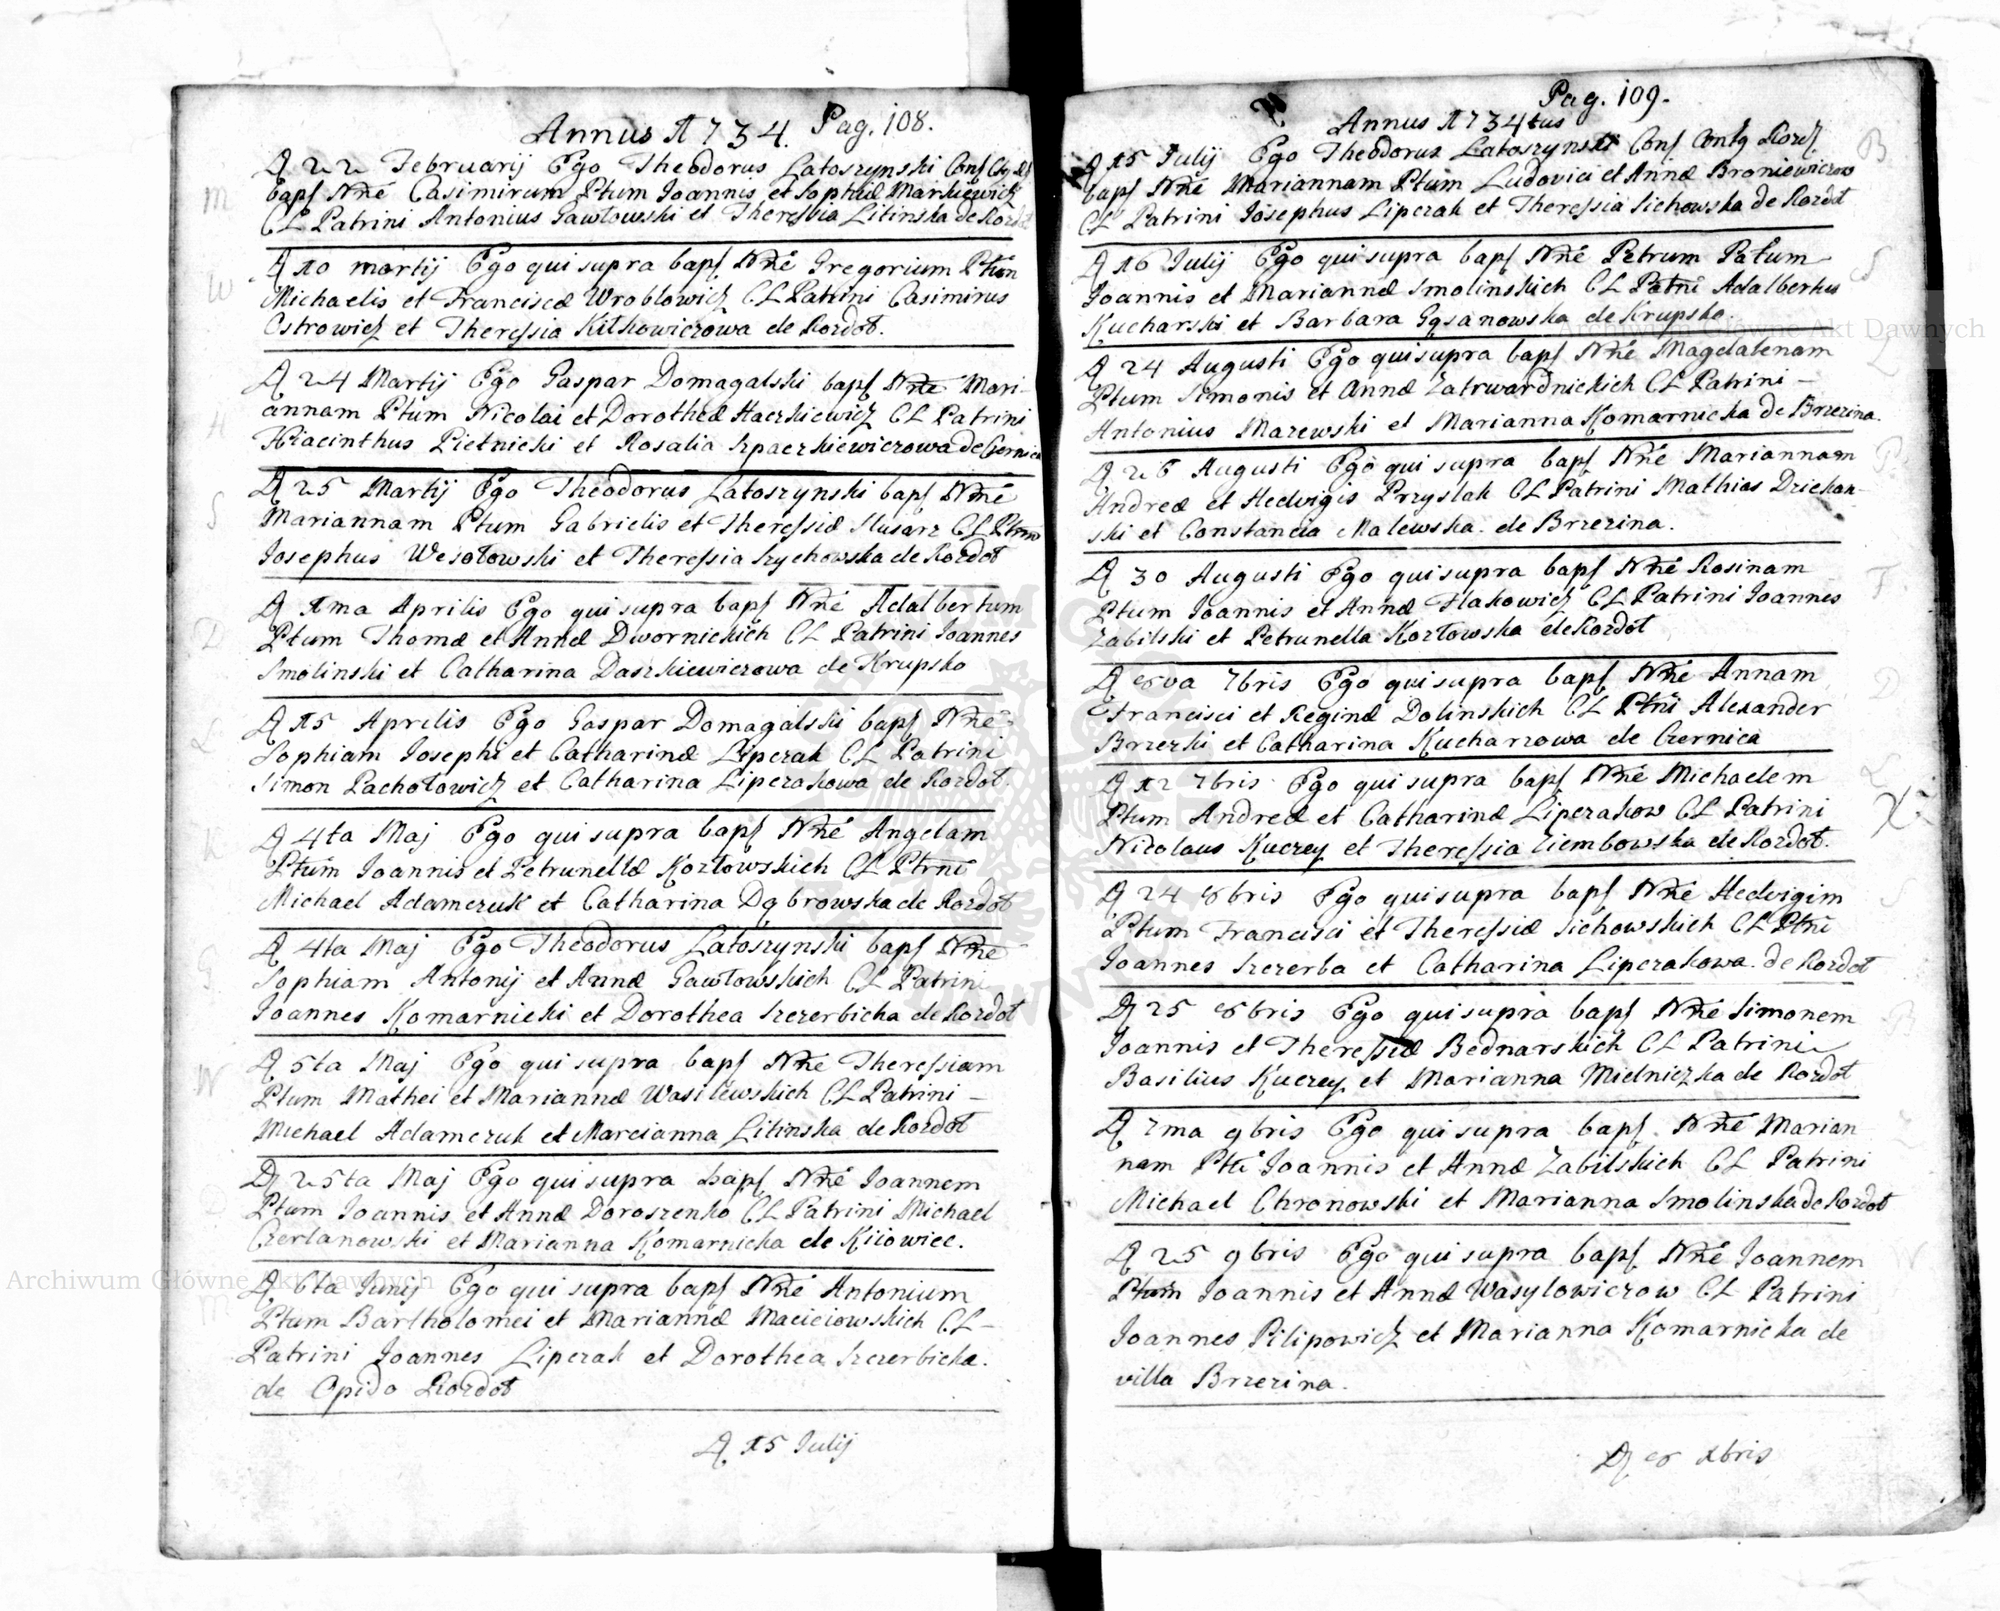 Annus 1734. Pag. 108.
D 22 Februarij Ego Theodorus Latoszynski Conf
M bapſ Nñe Casimirum Ptum Joannis et Sophiæ Markiewicz
CL Patrini Antonius Gawłowski et Theressia Litinska de Rozdoł
D 10 martij Ego qui supra bapſ Nñe Gregorium Ptum
W Michaelis et Franciscæ Wroblowicz CL Patrini Casimirus
Ostrowicz et Theressia Kitkowiczowa de Rozdoł.
D 24 Martij Ego Gaspar Domagalski bapſ Nñe Mari-
H annam Ptum Nicolai et Dorotheæ Haczkiewicz CL Patrini
Hiacinthus Pietnicki et Rosalia Szpaczkiewiczowa de Czernica
D 25 Martij Ego Theodorus Latoszynski bapſ Nñe
S Mariannam Ptum Gabrielis et Theressiæ Slusarz CL Ptrni
Josephus Wesołowski et Theressia Szychowska de Rozdoł
D 1ma Aprilis Ego qui supra bapſ Nñe Adalbertum
D Ptum Thomæ et Annæ Dwornickich CL Patrini Joannes
Smolinski et Catharina Daszkiewiczowa de Krupsko
D 15 Aprilis Ego Gaspar Domagalski bapſ Nñe
L Sophiam Josephi et Catharinæ Lipczak CL Patrini
Simon Pachołowicz et Catharina Lipczakowa de Rozdoł.
D 4ta Maj Ego qui supra bapſ Nñe Angelam
K Ptum Joannis et Petrunellæ Kozłowskich CL Ptrni
Michael Adamczuk et Catharina Dąbrowska de Rozdoł
D 4ta Maj Ego Theodorus Latoszynski bapſ Nñe
G Sophiam Antonij et Annæ Gawłowskich CL Patrini
Joannes Komarnicki et Dorothea Szczerbicka de Rozdoł
D 5ta Maj Ego qui supra bapſ Nñe Theressiam
W Ptum Mathei et Mariannæ Wasilewskich CL Patrini –
Michael Adamczuk et Marcianna Litinska de Rozdoł
D 25ta Maj Ego qui supra bapſ Nñe Joannem
D Ptum Joannis et Annæ Doroszenko CL Patrini Michael
Czerlanowski et Marianna Komarnicka de Kiiowiec.
D 6ta Junij Ego qui supra bapſ Nñe Antonium
M Ptum Bartholomei et Mariannæ Maciciowskich CL –
Patrini Joannes Lipczak et Dorothea Szczerbicka.
de Opido Rozdoł
D 15 Julij
Pag. 109.
Annus 1734tus
D 15 Julij Ego Theodorus Latoszynski Conf Rozd B
bapſ Nñe Mariannam Ptum Ludovici et Annæ Broniewiczow
CL Patrini Josephus Lipczak et Theressia Sichowska de Rozdoł
D 16 Julij Ego qui supra bapſ Nñe Petrum Patum S
Joannis et Mariannæ Smolinskich CL Patrni Adalbertus
Kucharski et Barbara Gąsanowska de Krupsko.
D 24 Augusti Ego qui supra bapſ Nñe Magdalenam Z
Ptum Simonis et Annæ Zatwardnickich CL Patrini –
Antonius Mazewski et Marianna Komarnicka de Brzezina.
D 26 Augusti Ego qui supra bapſ Nñe Mariannam P
Andreæ et Hedvigis Przyslak CL Patrini Mathias Dziekan-
ski et Constancia Malewska de Brzezina.
D 30 Augusti Ego qui supra bapſ Nñe Rosinam F
Ptum Joannis et Annæ Flakowicz CL Patrini Joannes
Zabilski et Petrunella Kozłowska de Rozdoł
D 8va 7bris Ego qui supra bapſ Nñe Annam D
Francisci et Reginæ Dolinskich CL Ptni Alexander
Brzezki et Catharina Kucharzowa de Czernica
D 12 7bris Ego qui supra bapſ Nñe Michaelem L
Ptum Andreæ et Catharinæ Lipczakow CL Patrini
Nicolaus Kuczey et Theressia Ziembowska de Rozdoł.
D 24 8bris Ego qui supra bapſ Nñe Hedvigim S
Ptum Francisci et Theressiæ Sichowskich CL Ptni
Joannes Szczerba et Catharina Lipczakowa de Rozdoł
D 25 8bris Ego qui supra bapſ Nñe Simonem B
Joannis et Theressiæ Bednarskich CL Patrini
Basilius Kuczey et Marianna Mielniczka de Rozdoł
D 7ma 9bris Ego qui supra bapſ Nñe Marian
nam Ptũ Joannis et Annæ Zabilskich CL Patrini
Michael Chronowski et Marianna Smolinska de Rozdoł
D 25 9bris Ego qui supra bapſ Nñe Joannem
Ptum Joannis et Annæ Wasylowiczow CL Patrini
Joannes Pilipowicz et Marianna Komarnicka de
villa Brzezina.
D 8 Xbris
Archiwum Główne Akt Dawnych
Archiwum Główne Akt Dawnych